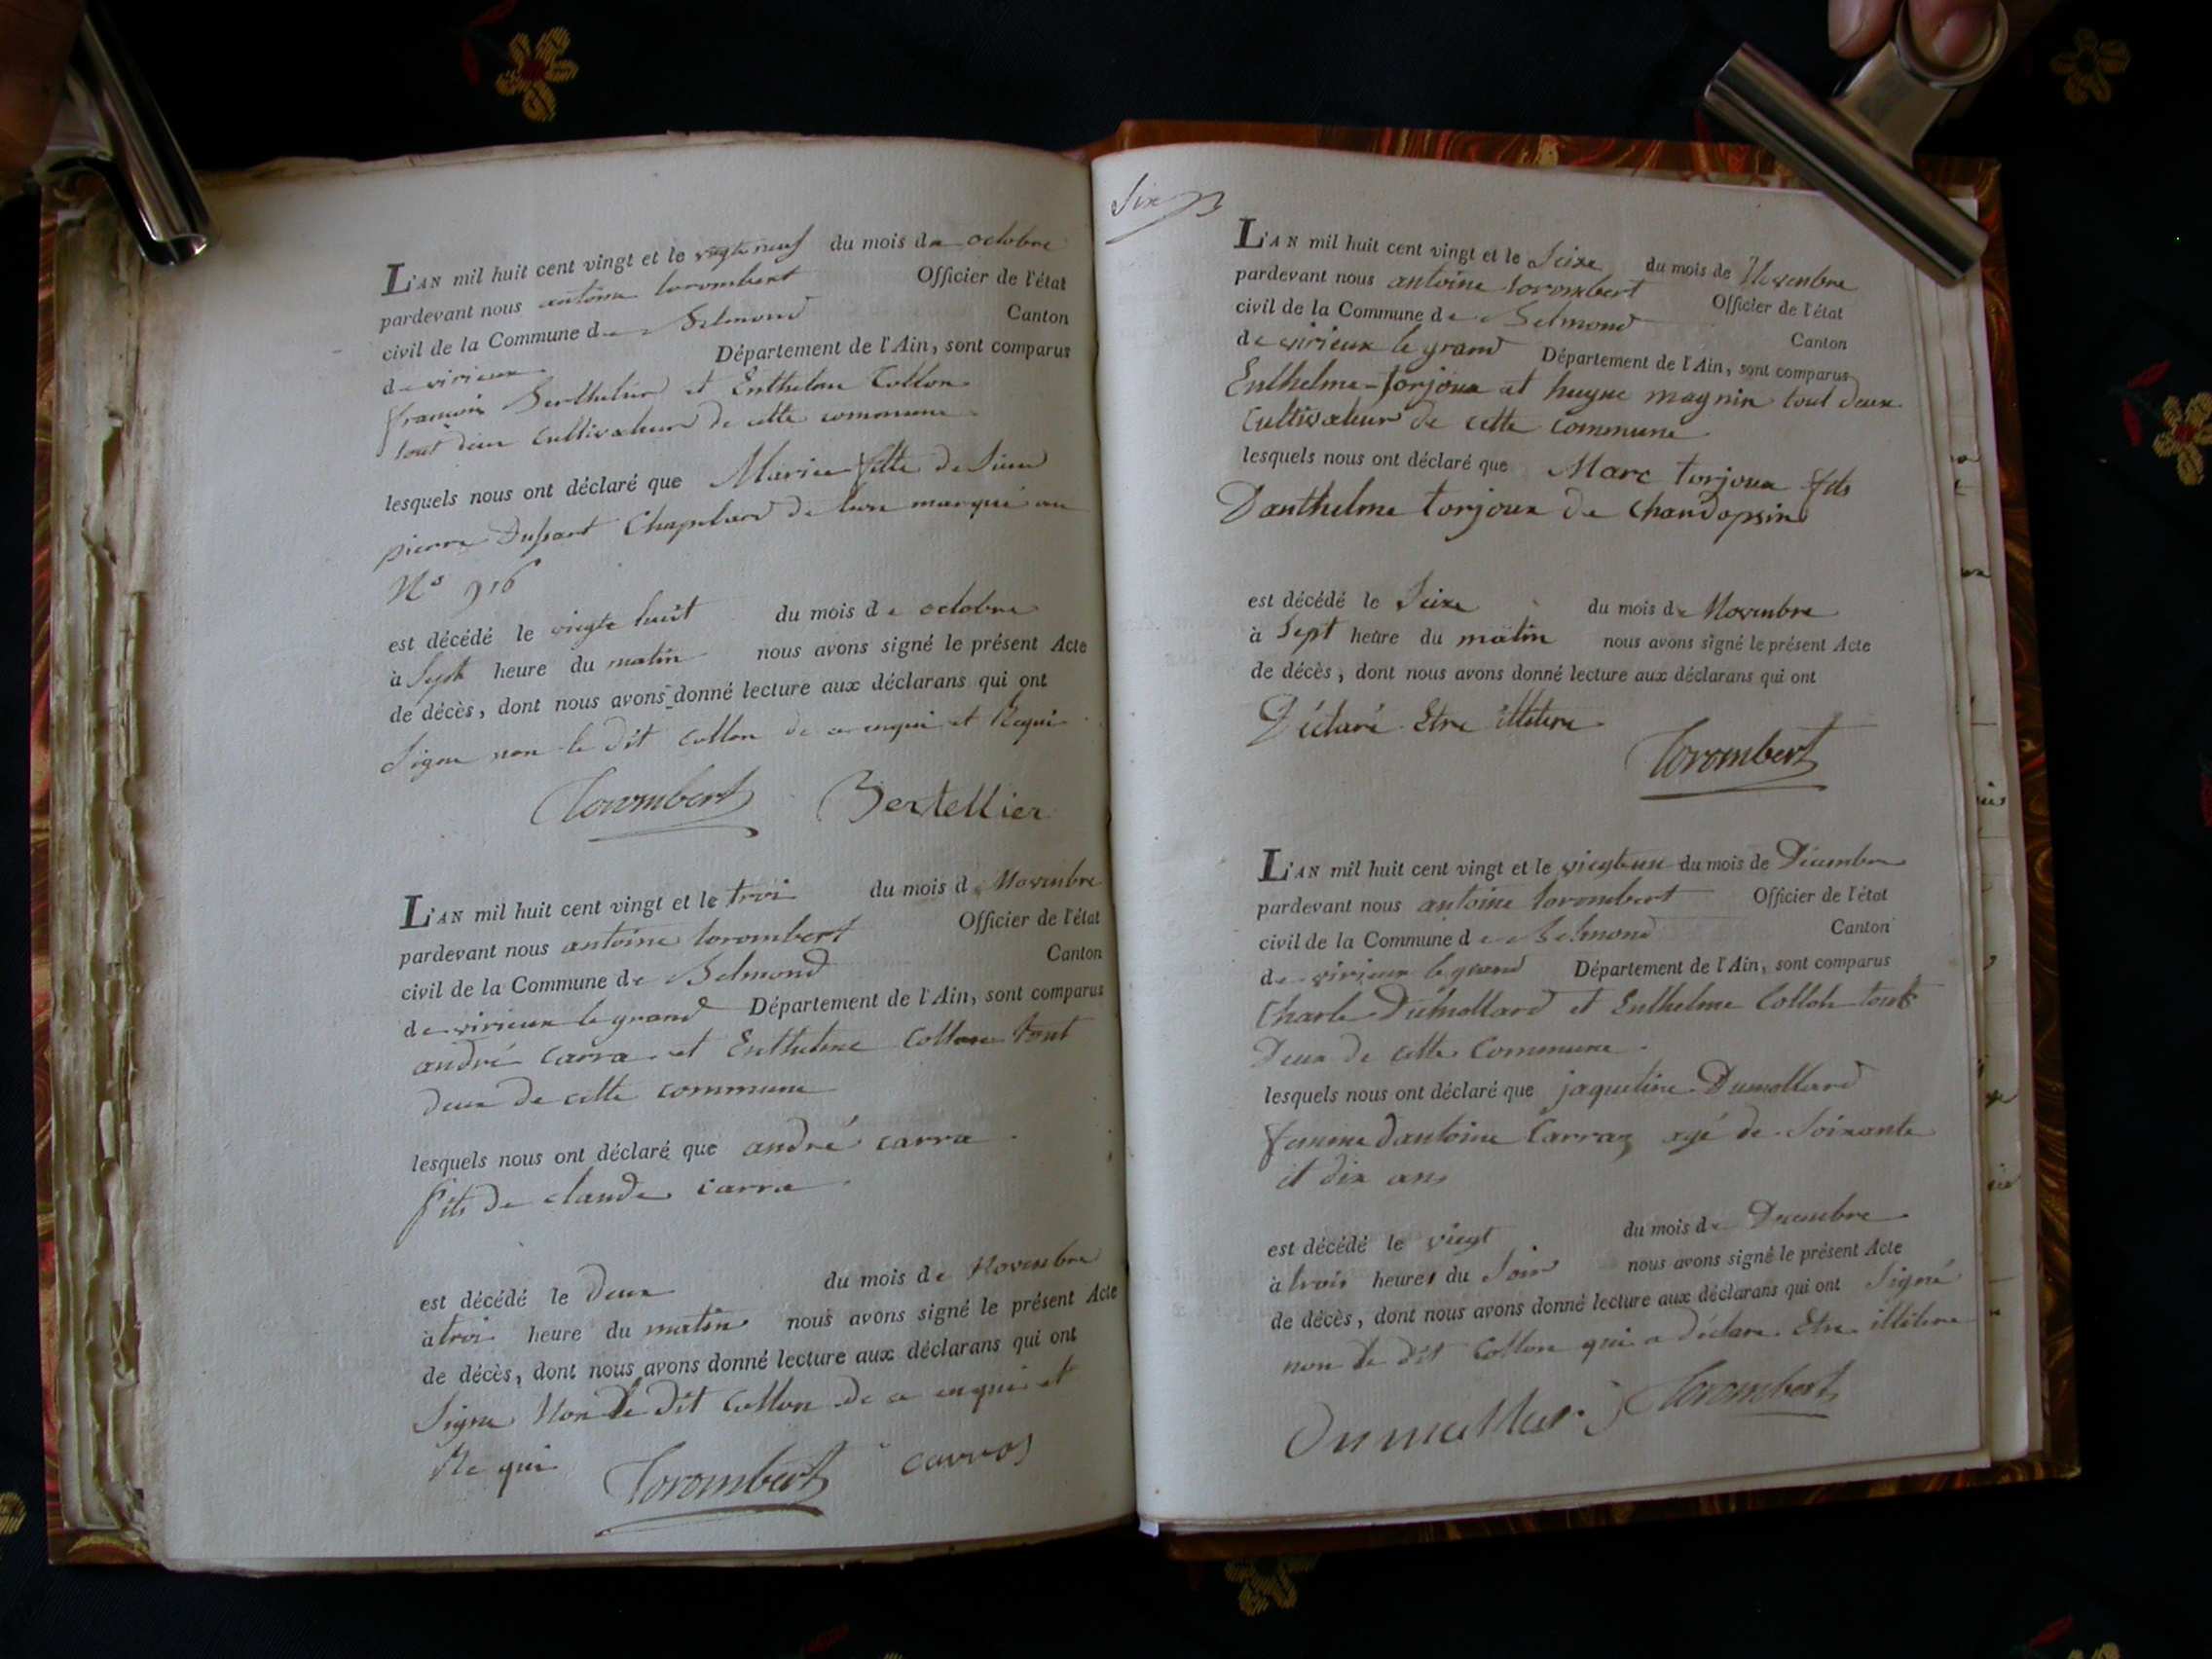 L'AN mil huit cent vingt et le vingte neuf du mois de octobre
pardevant nous antoine torombert Officier de l'état
civil de la Commune de Belmond Canton
de virieux Département de l'Ain, sont comparus
francois Berthelier et Enthelme Collon
tout deux Cultivateur de cette commune
lesquels nous ont déclaré que Marie fille de Sieur
pierre Dussart Chapelard de lion marqué au
N° 916
est décédé le vingte huit du mois de octobre
à Sept heure du matin nous avons signé le présent Acte
de décès, dont nous avons donné lecture aux déclarans qui ont
Signe non le dit Collon de ce enquis et Requi
Torombert Bertellier
L'AN mil huit cent vingt et le troi du mois de Novembre
pardevant nous antoine torombert Officier de l'état
civil de la Commune de Belmond Canton
de virieux le grand Département de l'Ain, sont comparus
andré Carra et Enthelme Collon tout
deux de cette commune
lesquels nous ont déclaré que andré carra
fils de claude carra
est décédé le Deux du mois de Novembre
à troi heure du matin nous avons signé le présent Acte
de décès, dont nous avons donné lecture aux déclarans qui ont
Signe Non le Dit Collon de ce enquis et
Requi Torombert
Six
L'AN mil huit cent vingt et le Seixe du mois de Novembre
pardevant nous antoine torombert Officier de l'état
civil de la Commune de Belmond Canton
de virieux le grand Département de l'Ain, sont comparus
Enthelme torjoux et hugue magnin tout deux
Cultivateur de cette commune
lesquels nous ont déclaré que Marc torjoux fils
Danthelme torjoux de Chandossin
est décédé le Seixe du mois de Novembre
à Sept heure du matin nous avons signé le présent Acte
de décès, dont nous avons donné lecture aux déclarans qui ont
Déclaré Etre illitere
Torombert
L'AN mil huit cent vingt et le viegteun du mois de Décembre
pardevant nous antoine torombert Officier de l'état
civil de la Commune de Belmond Canton
de virieux le grand Département de l'Ain, sont comparus
Charle Dumollard et Enthelme Collon touts
Deux de cette Commune
lesquels nous ont déclaré que jaqueline Dumollard
femme dantoine Carraz agé de Soixante
et dix ans
est décédé le viegt du mois de Decembre
à trois heures du Soir nous avons signé le présent Acte
de décès, dont nous avons donné lecture aux déclarans qui ont Signé
non le dit Collon qui a déclare Etre illitere
Torombert